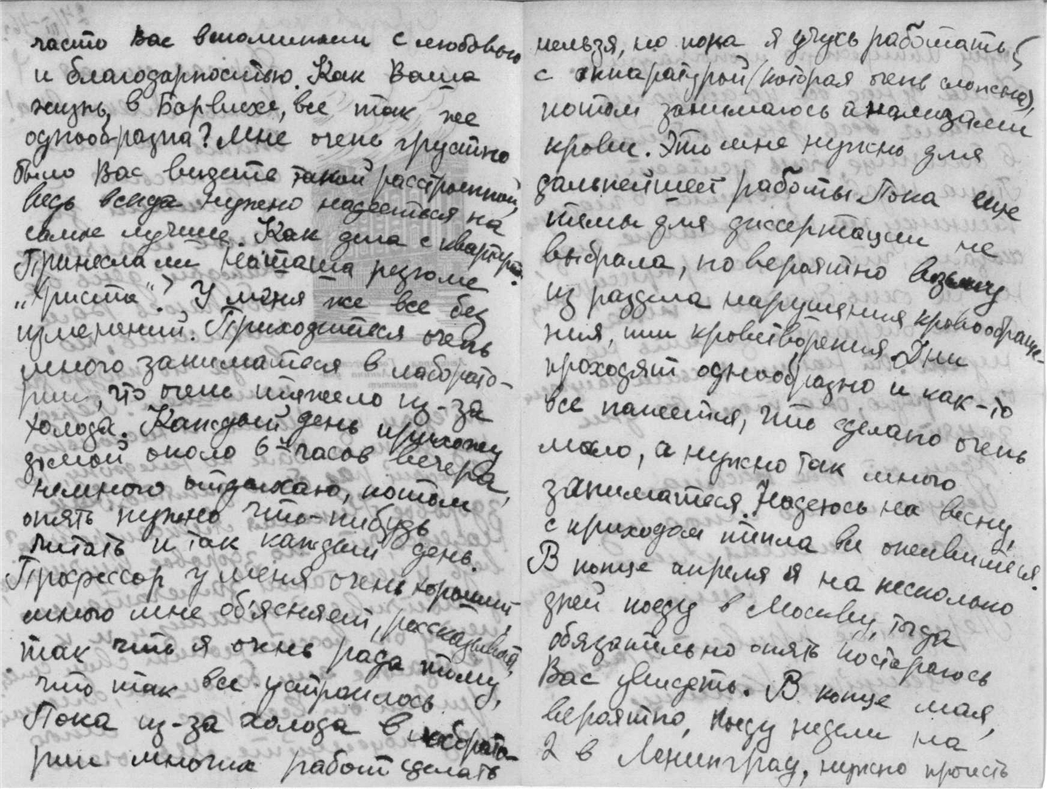 часто Вас вспоминаем с любовью
и благодарностью. Как Ваша
жизнь в Барвихе, все так же
однообразна? Мне очень грустно
было Вас видеть такой расстроенной,
ведь всегда нужно надеяться на
самое лучшее. Как дела с квартирой.
Принесла ли Наташа резюме
"юриста"? У меня же все без
изменений. Приходится очень
много заниматься в лаборато-
рии, что очень тяжело из-за
холода. Каждый день прихожу
домой около 6ти часов вечера,
немного отдыхаю, потом
опять нужно что-нибудь
читать и так каждый день.
Профессор у меня очень хороший,
много мне объясняет, рассказывает,
так что я очень рада тому,
что так все устроилось.
Пока из-за холода в лаборато-
рии многих работ сделать
нельзя, но пока я учусь работать
с аппаратурой (которая очень сложна),
потом занимаюсь анализами
крови. Это мне нужно для
дальнейшей работы. Пока еще
темы для диссертации не
выбрала, но вероятно возьму
из раздела нарушения кровообраще-
ния, или кроветворения. Дни
проходят однообразно и как-то
все кажется, что сделано очень
мало, а нужно так много
заниматься. Надеюсь на весну,
с приходом тепла все оживится.
В конце апреля я на несколько
дней поеду в Москву, тогда
обязательно опять постараюсь
Вас увидеть. В конце мая,
вероятно, поеду недели на
2 в Ленинград, нужно прочесть